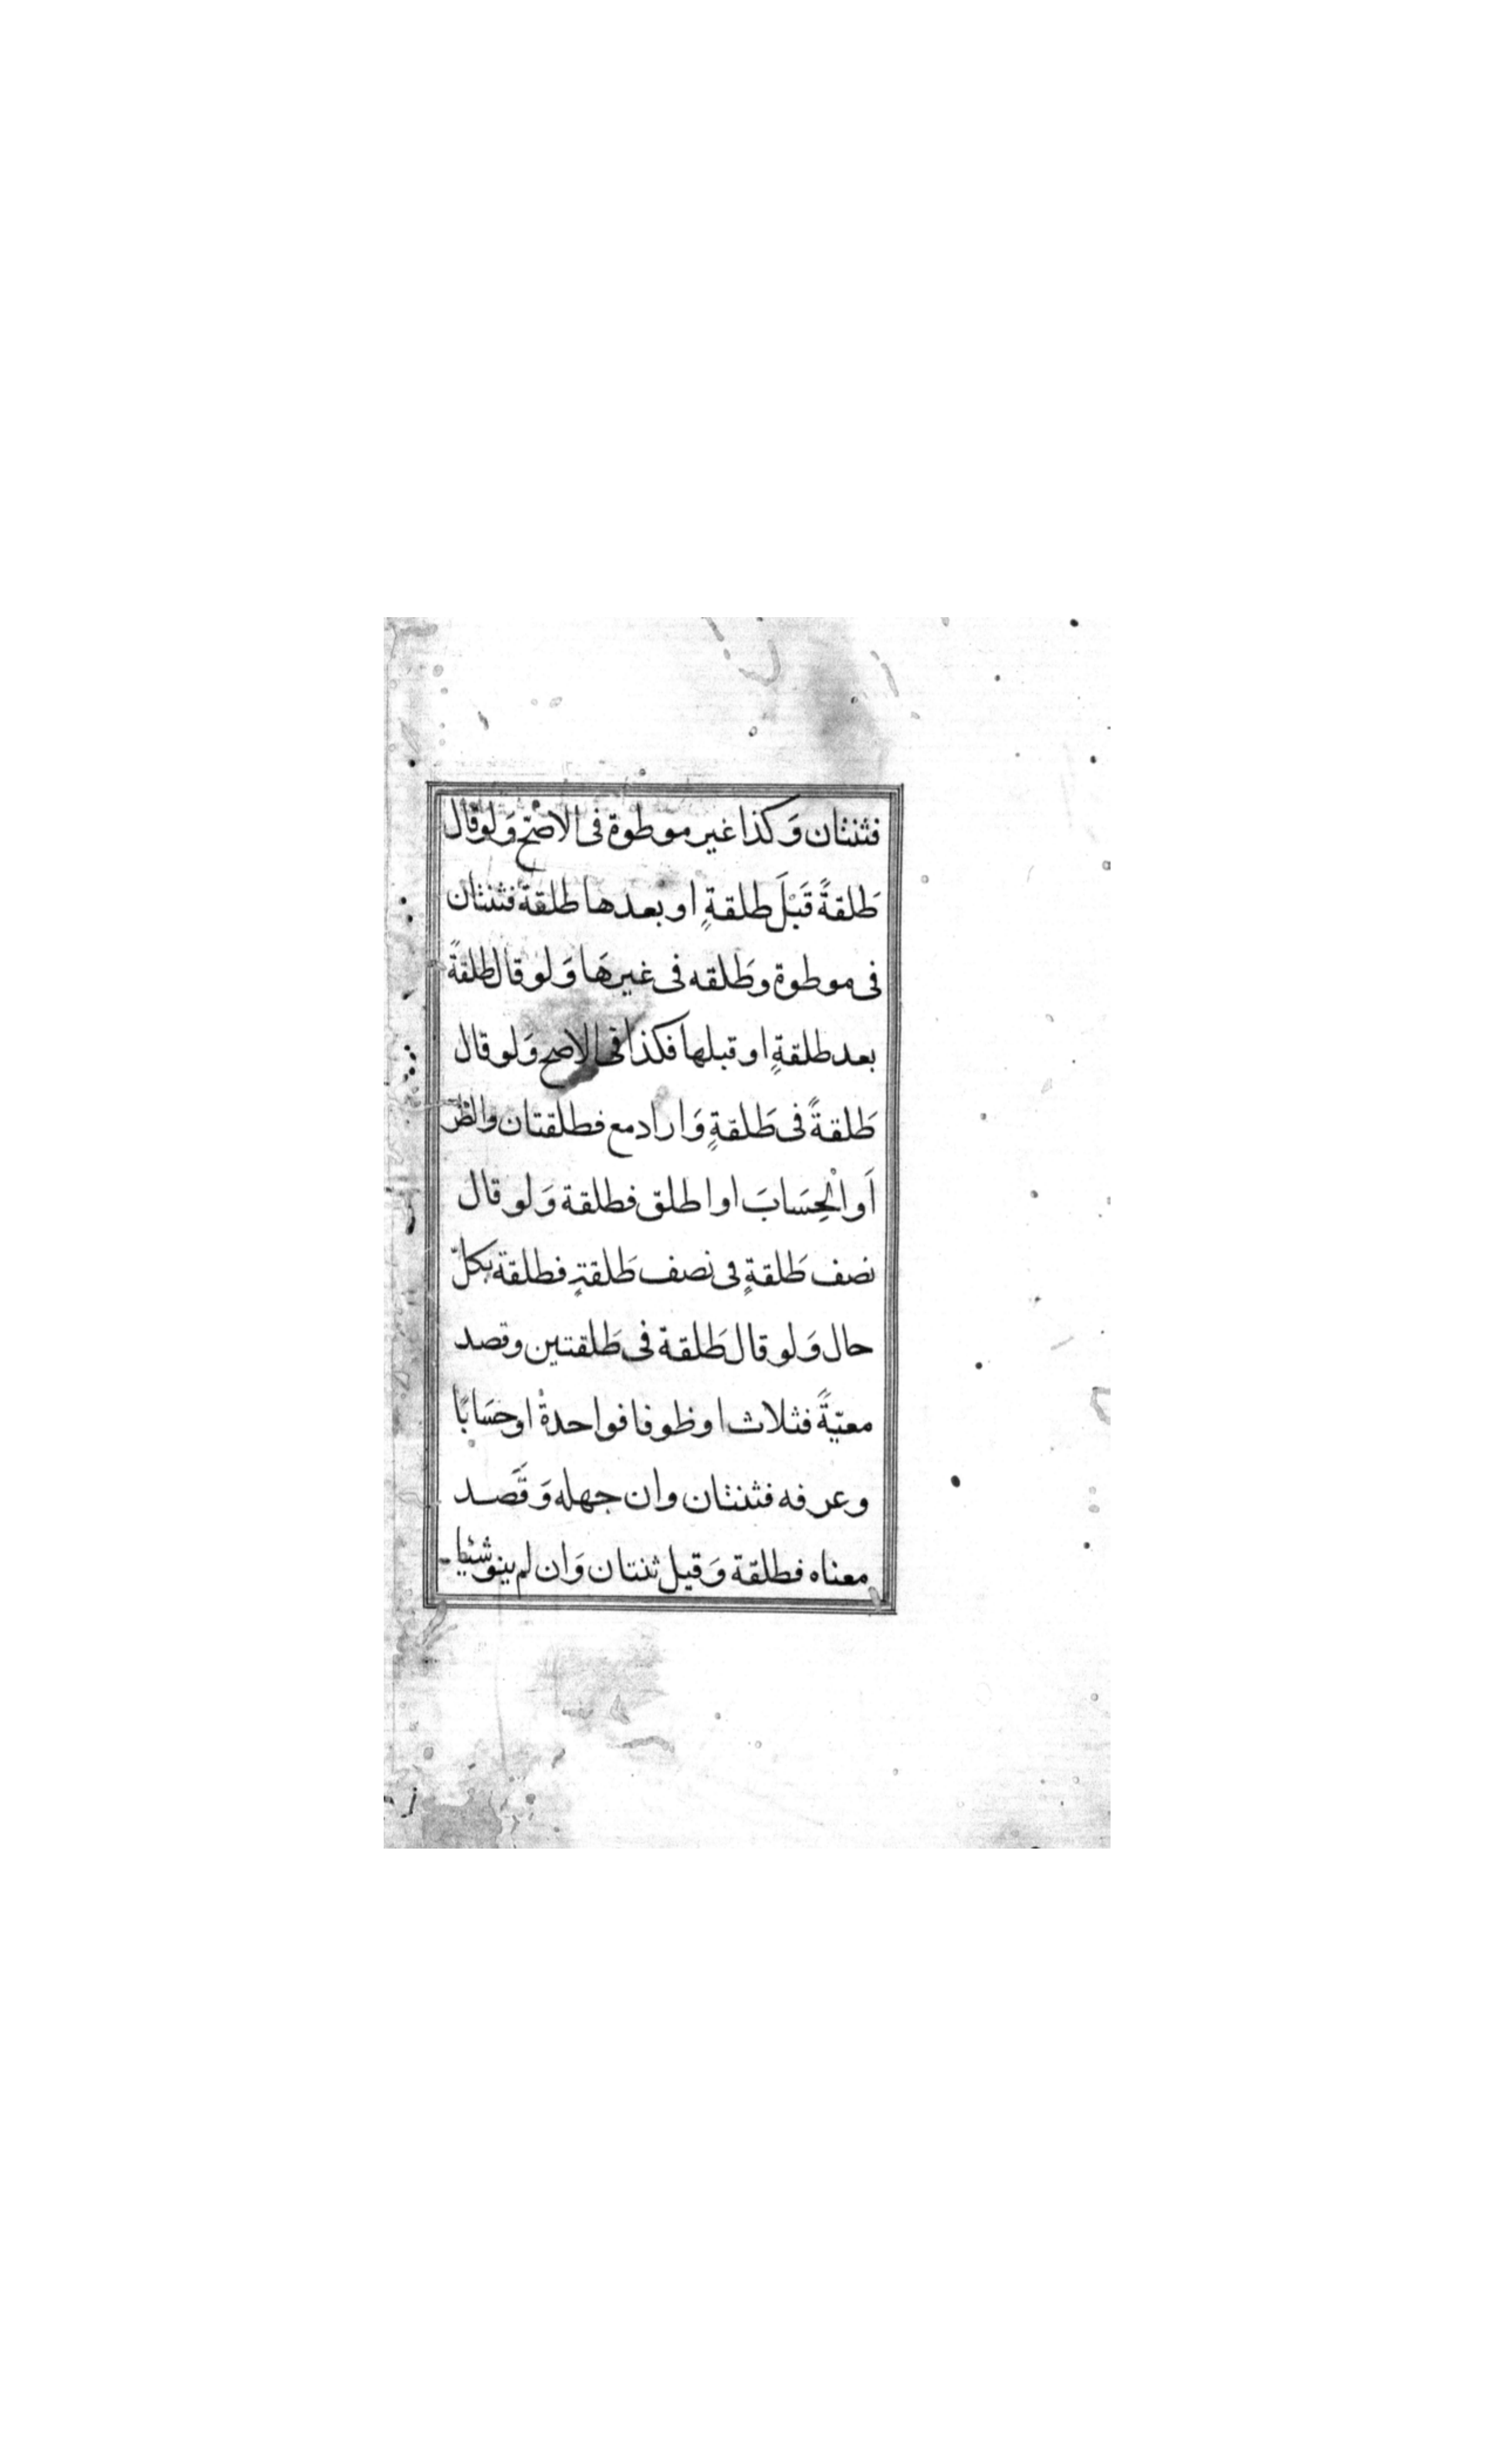 فثنتان وَكذا غير موطوة فى الاصَحّ وَلو قال
طَلقةً قَبْلَ طلقةٍ او بعدها طلقة فثنتان
فى موطوة وطَلقه فى غيرهَا وَلو قال طلقةً
بعد طلقةٍ او قبلها فكذا فى الاصح وَلو قال
طَلقةً فى طَلقةٍ وَاراد مع فطلقتان والظر
اَو الْحِسَابَ او اطلق فطلقة وَلو قال
نصف طَلقةٍ فى نصف طَلقةٍ فطلقة بكلّ
حال وَلو قال طَلقة فى طَلقتين وقصد
معيّةً فثلاث او ظرفا فواحدةٌ او حسَابًا
وعرفه فثنتان وان جهله وَقَصد
معناه فطلقة وَقيل ثنتان وَان لم ينو شيئا